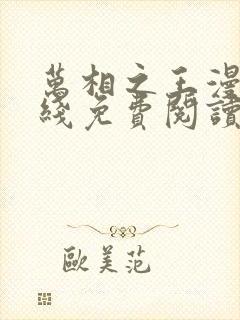 萬相之王漫
綫免費閱讀
歐美范